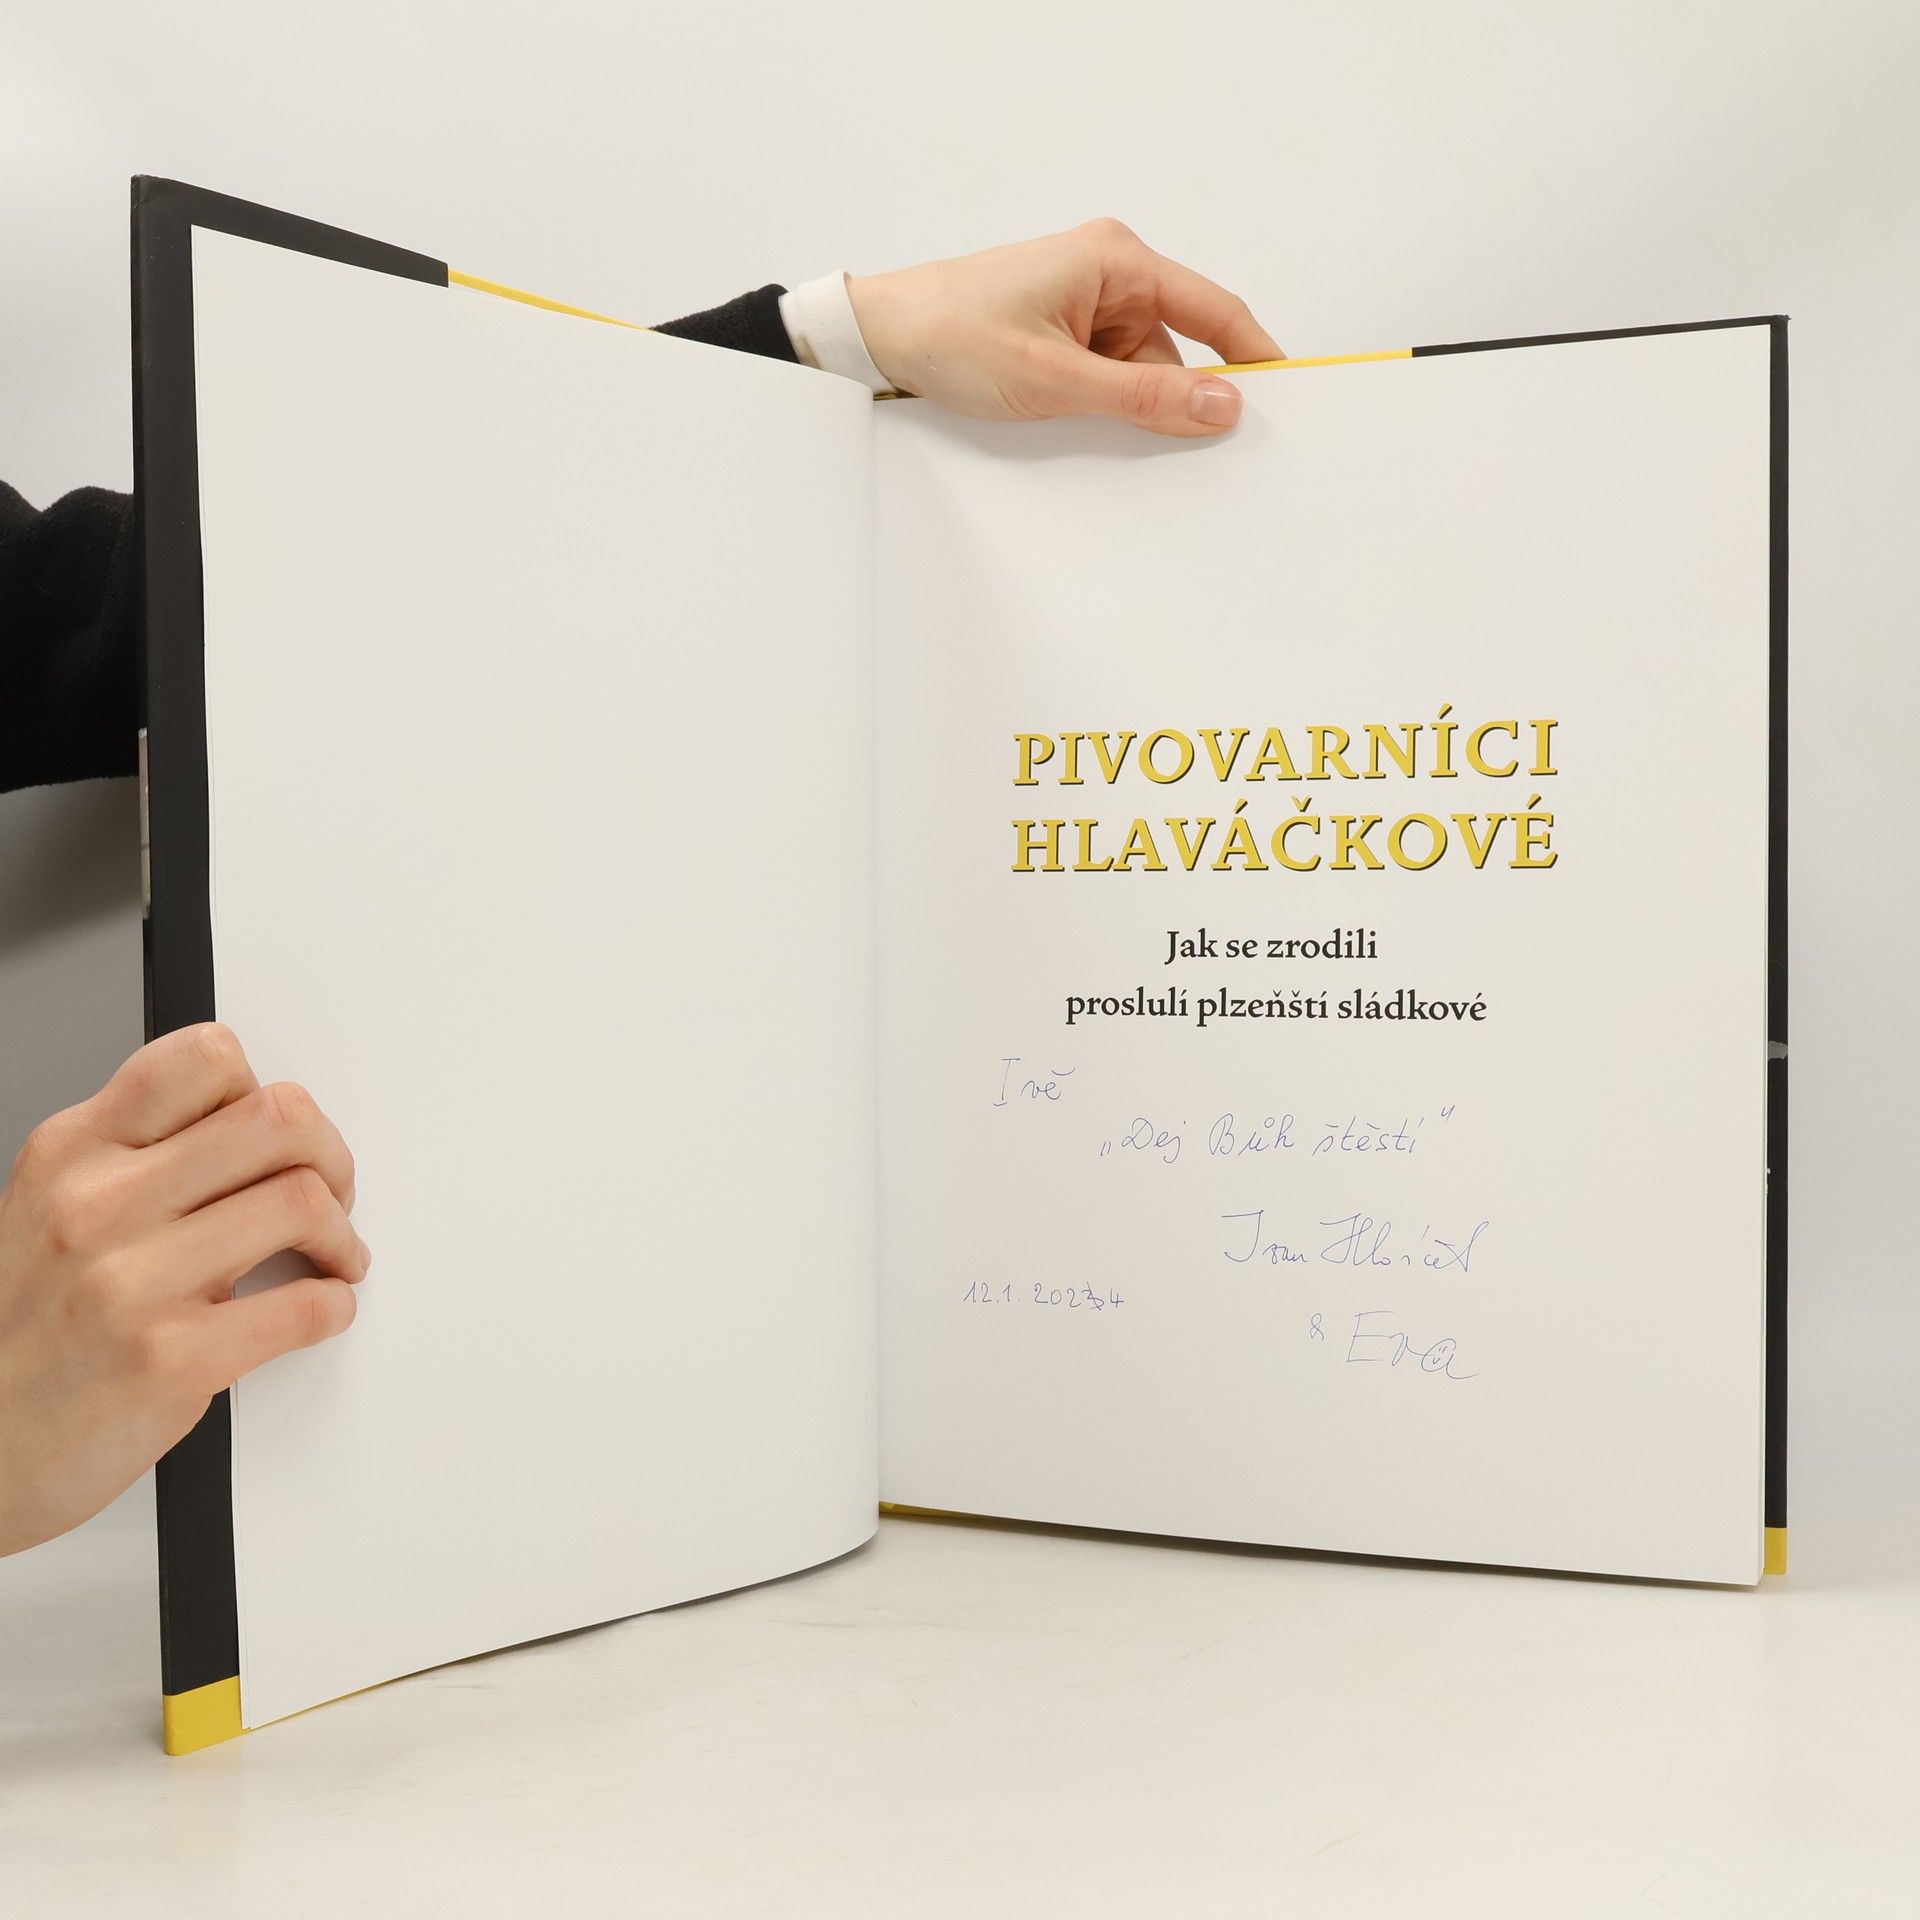 PIVOVARNÍCI
HLAVÁČKOVÉ
Jak se zrodili
proslulí plzeňští sládkové
Ivě
„Dej Bůh štěstí"
Ivan Hlaváček
12.1. 2024
& Eva